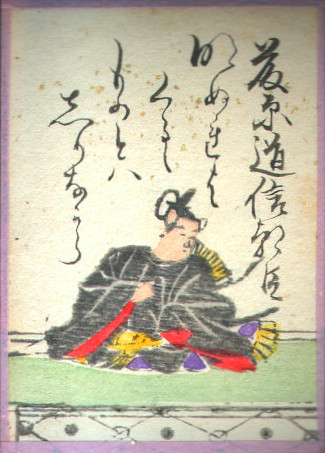 藤原道信朝臣
明ぬれは
くるゝ
ものとは
しりなから